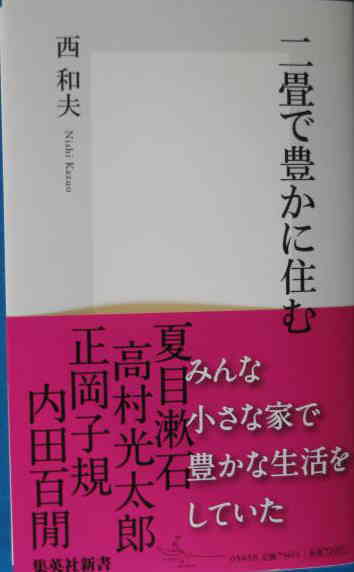 二畳で豊かに住む
西 和夫
Nishi Kazuo
みんな
小さな家で
豊かな生活を
していた
夏目漱石
高村光太郎
正岡子規
内田百閒
集英社新書